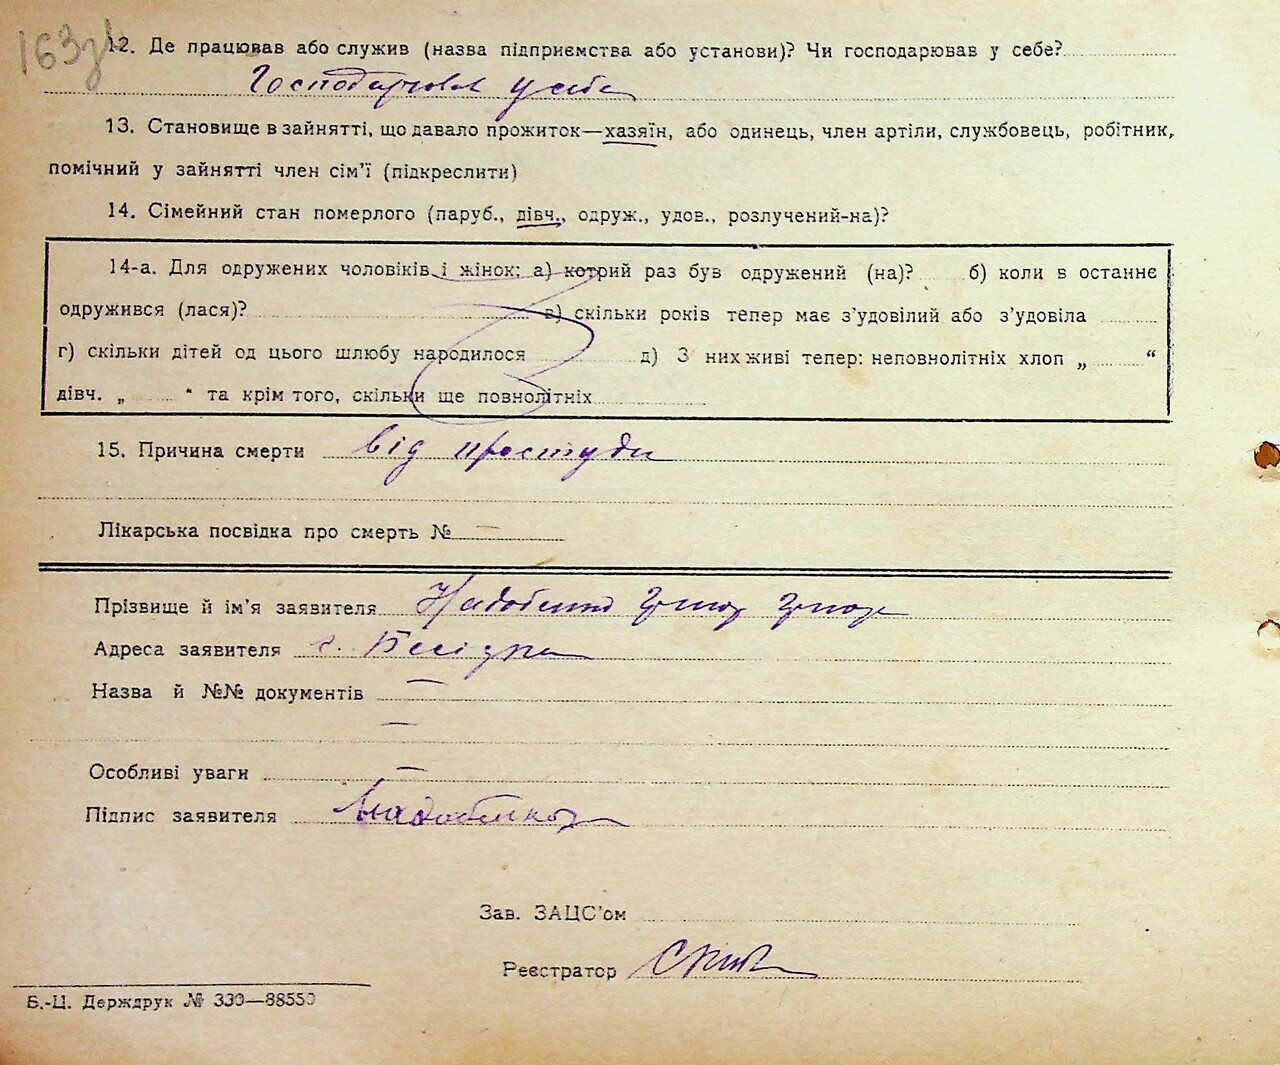 163зв
12. Де працював або служив (назва підприємства або установи)? Чи господарював у себе?
Господарював у себе
13. Становище в зайнятті, що давало прожиток—хазяїн, або одинець, член артіли, службовець, робітник,
помічний у зайнятті член сім'ї (підкреслити)
14. Сімейний стан померлого (паруб., дівч., одруж., удов., розлучений-на)?
14-а. Для одружених чоловіків і жінок: а) котрий раз був одружений (на)? б) коли в останнє
одружився (лася)? в) скільки років тепер має з'удовілий або з'удовіла
г) скільки дітей од цього шлюбу народилося д) З них живі тепер: неповнолітніх хлоп „ “
дівч. „ “ та крім того, скільки ще повнолітніх
15. Причина смерти від простуди
Лікарська посвідка про смерть № —
Прізвище й ім'я заявителя Надобенко Григор Григор
Адреса заявителя с. Бесідка
Назва й №№ документів —
—
Особливі уваги —
Підпис заявителя Надобенко
Зав. ЗАЦС'ом
Реєстратор
Б.-Ц. Держдрук № 330—88550